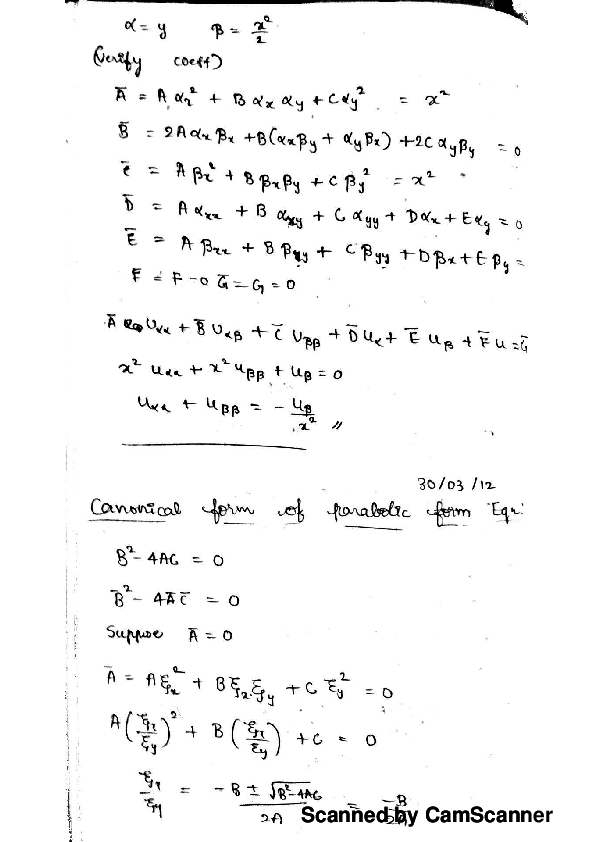 α = y    β = x²/2
(Verify coeff)
Ā = A αx² + B αx αy + C αy² = x²
B̄ = 2A αx βx + B(αx βy + αy βx) + 2C αy βy = 0
c̄ = A βx² + B βx βy + C βy² = x²
D̄ = A αxx + B αxy + C αyy + D αx + E αy = 0
Ē = A βxx + B βxy + C βyy + D βx + E βy =
F̄ = F = 0 Ḡ = G = 0
Ā Uαα + B̄ Uαβ + C̄ Uββ + D̄ Uα + Ē Uβ + F̄ u = Ḡ
x² uαα + x² uββ + uβ = 0
uαα + uββ = - uβ/x² //
30/03/12
Canonical form of parabolic form Eqn:
B² - 4AC = 0
B̄² - 4Ā C̄ = 0
Suppose Ā = 0
Ā = A ξx² + B ξx ξy + C ξy² = 0
A(ξx/ξy)² + B(ξx/ξy) + C = 0
ξx/ξy = (-B ± √(B² - 4AC))/2A = -B/2A
Scanned by CamScanner